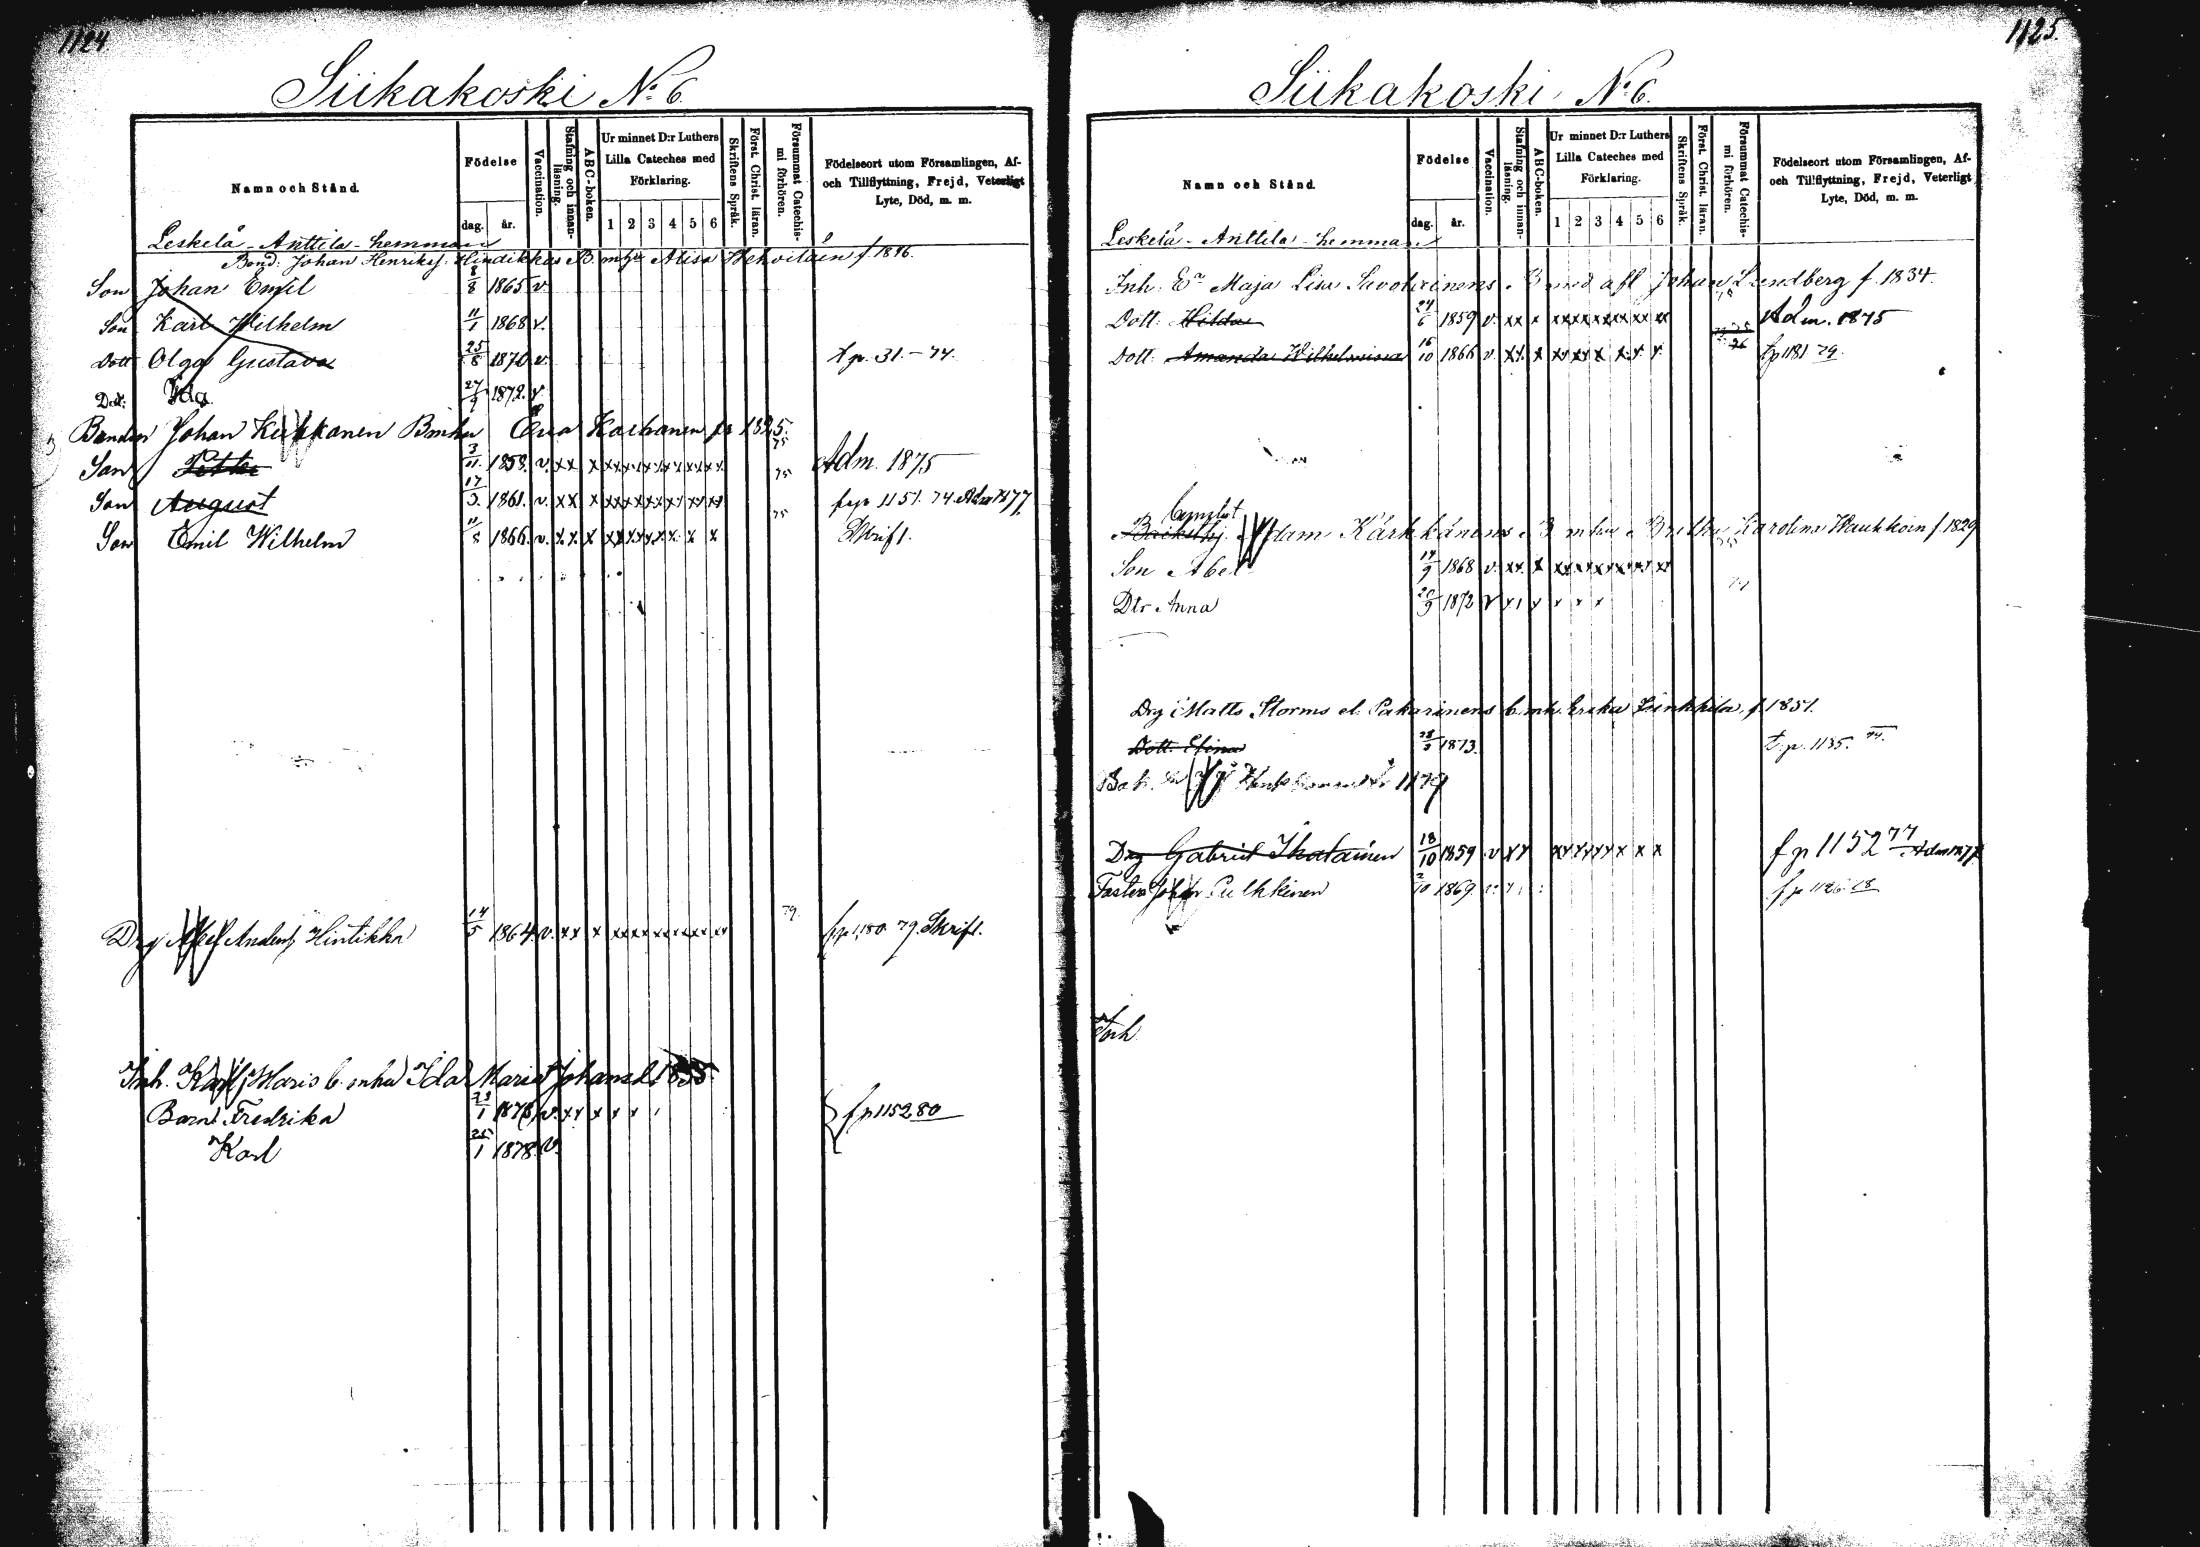 1124
Siikakoski No 6.
Namn och Stånd.
Födelse
dag. år.
Vaccination.
Stafning och innanläsning.
ABC-boken.
Ur minnet D:r Luthers Lilla Cateches med Förklaring.
1 2 3 4 5 6
Skriftens Språk.
Först. Christ. läran.
Försummat Catechismi förhören.
Födelseort utom Församlingen, Af- och Tillflyttning, Frejd, Veterligt Lyte, Död, m. m.
Leskelä-Anttila-hemman
Bond. Johan Henrikss. Hindikkas B. mhu Alisa f. 1846.
Son Johan Emil 8/8 1865 v
Son Karl Wilhelm 11/1 1868 v.
Dott Olga Gustava 25/8 1870 v. t p. 31.-74.
Dott: Ida 1872. v
Bonden Johan Bmhu Eva 1825.
Son Petter 3/11. 1858. v. xx x xxxxxxxxxxx 75 Adm. 1875
Son August 17/3. 1861. v. xx x xxxxxxxxxxx 75 1151. 74. Adm 1877
Son Emil Wilhelm 11/8 1866. v. x.x. x xxxxxxx x x Skrift.
Drg Anderss Hintikka 14/5 1864. v. xx x xxxxxxxxxx 79. fp 1180 79. Skrift.
Inh. Karl Maris b. mhu Ida Maria Johansd. 1855
Barn Fredrika 23/1 1876 v. xx x x x
fp 1152 80
Karl 25/1 1878. v.
1125.
Siikakoski No 6.
Namn och Stånd.
Födelse
dag. år.
Vaccination.
Stafning och innanläsning.
ABC-boken.
Ur minnet D:r Luthers Lilla Cateches med Förklaring.
1 2 3 4 5 6
Skriftens Språk.
Först. Christ. läran.
Försummat Catechismi förhören.
Födelseort utom Församlingen, Af- och Tillflyttning, Frejd, Veterligt Lyte, Död, m. m.
Leskelä-Anttila-hemman
Inh. Maja Lisa Savolainens B med afl Johan Lundberg f. 1834.
Dott: Hilda 24/6 1859 v. xx x xxxxxxxxxx Adm. 1875
Dott. Amanda Wilhelmina 16/10 1866 v. xx. x xxxxx x x x tp 1181 79.
Adam Kärkkänens B mhu Karolina f. 1829
Son Abel 14/9 1868 v. xx. x xxxxxxxxxx
Dtr Anna 1872 v x x x x x
Drg Matts Storms el. Pakarinens b. mh. Erika f. 1851.
Dott. Elina 1873. t. p. 1135. 74.
1179
Drg Gabriel Ikalainen 18/10 1859 v xx xxxxxx x x fp 1152 77 Adm 1877
Foster Johan Pulkkinen 1869.